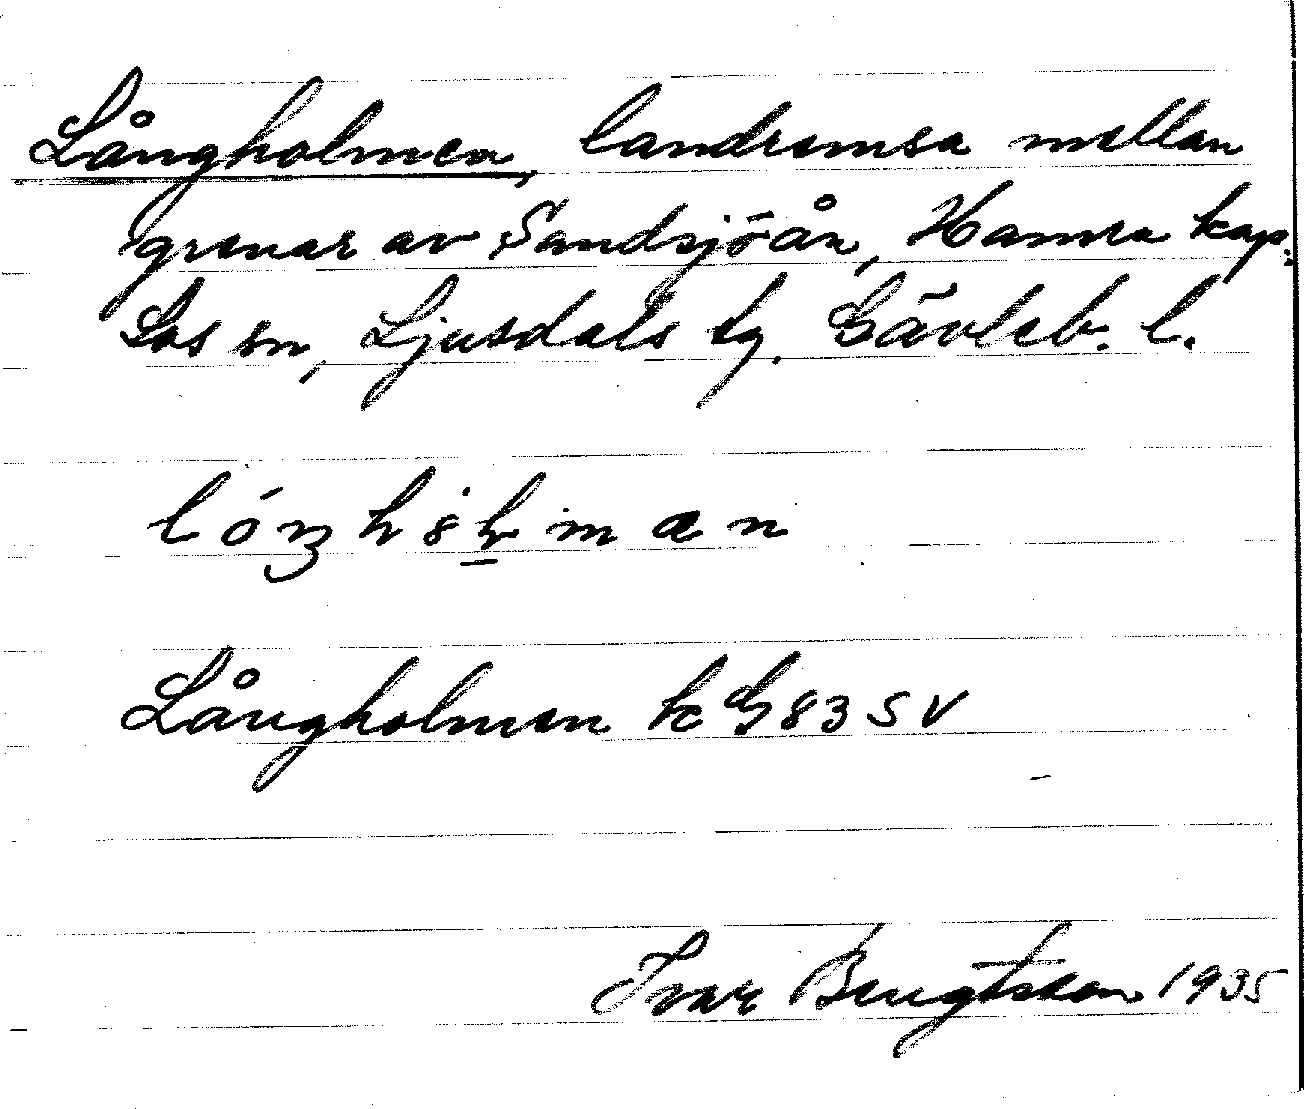 Långholmen, landremsa mellan
grenar av Sandsjöån, Hamra kap.
Los sn, Ljusdals tg. Gävleb. l.
Långholmen k G 83 SV
Ivar Bengtsson 1935